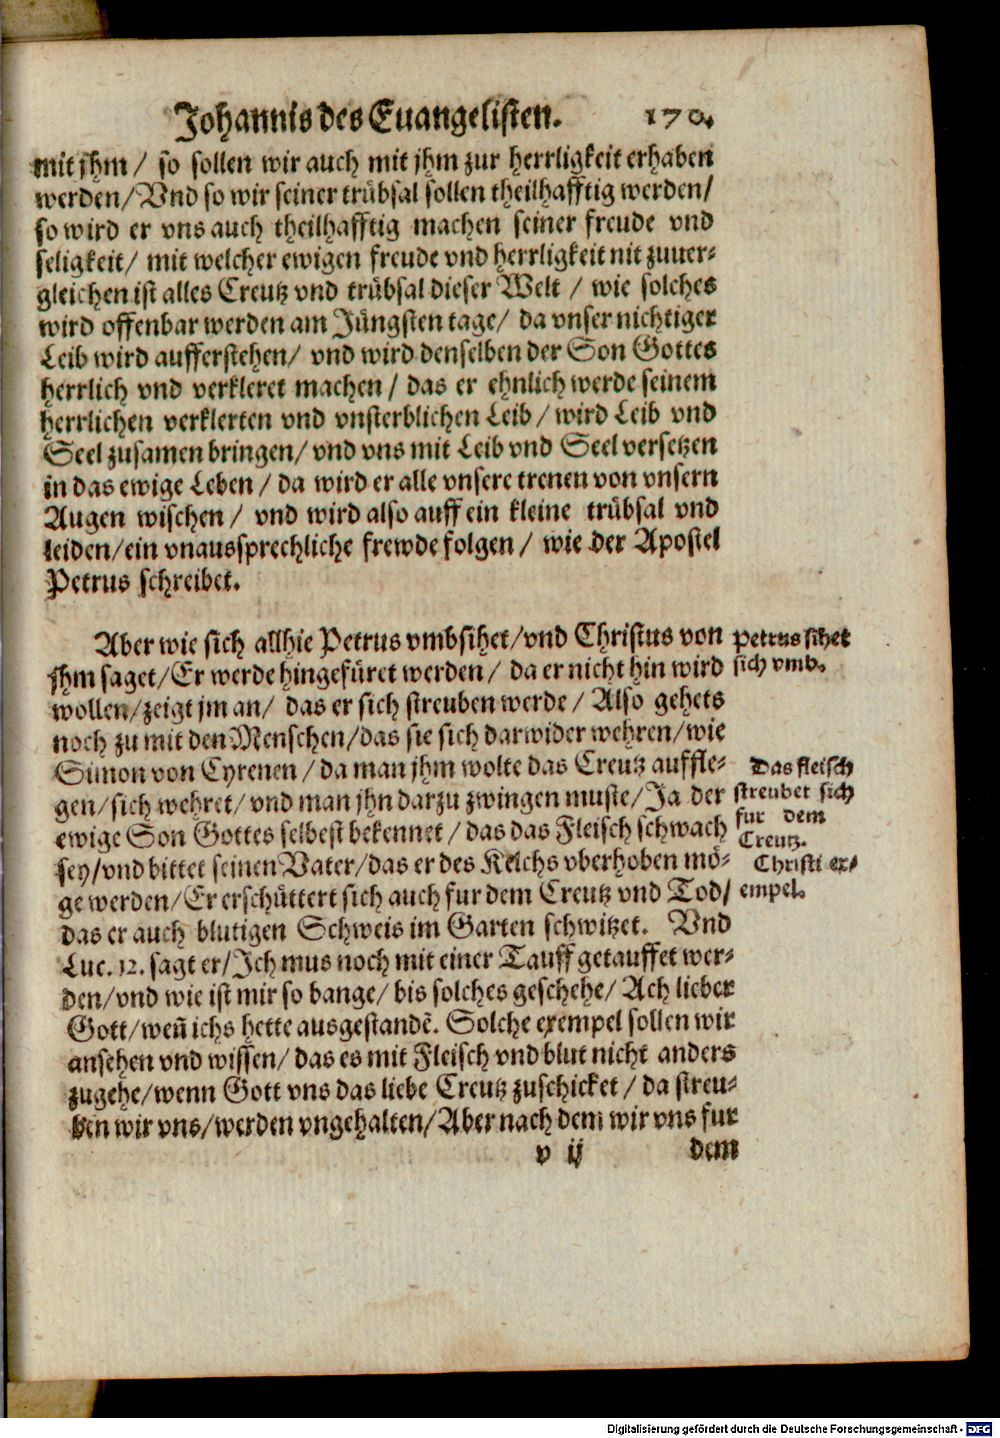 Johannis des Euangelisten. 170.
mit jhm / so sollen wir auch mit jhm zur herrligkeit erhaben
werden / Vnd so wir seiner trübsal sollen theilhafftig werden /
so wird er vns auch theilhafftig machen seiner freude vnd
seligkeit / mit welcher ewigen freude vnd herrligkeit nit zuuer-
gleichen ist alles Creutz vnd trübsal dieser Welt / wie solches
wird offenbar werden am Jüngsten tage / da vnser nichtiger
Leib wird aufferstehen / vnd wird denselben der Son Gottes
herrlich vnd verkleret machen / das er ehnlich werde seinem
herrlichen verklerten vnd vnsterblichen Leib / wird Leib vnd
Seel zusamen bringen / vnd vns mit Leib vnd Seel versetzen
in das ewige Leben / da wird er alle vnsere trenen von vnsern
Augen wischen / vnd wird also auff ein kleine trübsal vnd
leiden / ein vnaussprechliche frewde folgen / wie der Apostel
Petrus schreibet.
Aber wie sich allhie Petrus vmbsihet / vnd Christus von
jhm saget / Er werde hingefüret werden / da er nicht hin wird
wollen / zeigt jm an / das er sich streuben werde / Also gehets
noch zu mit den Menschen / das sie sich darwider wehren / wie
Simon von Cyrenen / da man jhm wolte das Creutz auffle-
gen / sich wehret / vnd man jhn darzu zwingen muste / Ja der
ewige Son Gottes selbest bekennet / das das Fleisch schwach
sey / vnd bittet seinen Vater / das er des Kelchs vberhoben mö-
ge werden / Er erschüttert sich auch fur dem Creutz vnd Tod /
das er auch blutigen Schweis im Garten schwitzet. Vnd
Luc. 12. sagt er / Ich mus noch mit einer Tauff getauffet wer-
den / vnd wie ist mir so bange / bis solches geschehe / Ach lieber
Gott / weñ ichs hette ausgestandẽ. Solche exempel sollen wir
ansehen vnd wissen / das es mit Fleisch vnd blut nicht anders
zugehe / wenn Gott vns das liebe Creutz zuschicket / da streu-
ben wir vns / werden vngehalten / Aber nach dem wir vns fur
v ij dem
Petrus sihet
sich vmb.
Das fleisch
streubet sich
fur dem
Creutz.
Christi ex-
empel.
Digitalisierung gefördert durch die Deutsche Forschungsgemeinschaft - DFG